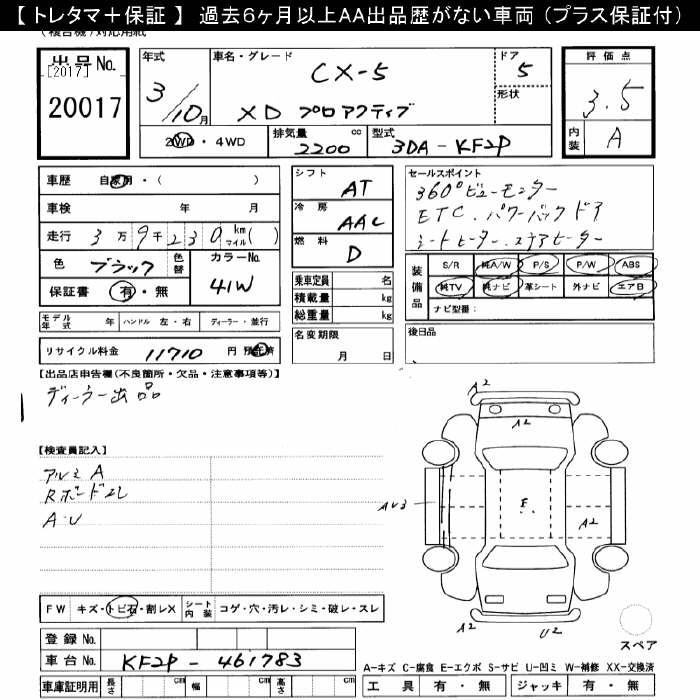 【 トレタマ＋保証 】 過去6ヶ月以上AA出品歴がない車両 (プラス保証付)
(複合機) 対応用紙
出品No. [2017]
20017
年式 3/10月
車名・グレード CX-5
XD プロアクティブ
ドア 5
形状
評価点 3.5
内装 A
2WD ・ 4WD
排気量 2200 cc
型式 3DA - KF2P
車歴 自家用 ・ ( )
車検 年 月
走行 3万9千230 km マイル( )
色 ブラック 色替 カラーNo. 41W
保証書 有 ・ 無
モデル年式 年 ハンドル 左・右 ディーラー・並行
リサイクル料金 11710 円 預託済
シフト AT
冷房 AAC
燃料 D
乗車定員 名
積載量 kg
総重量 kg
名変期限
月 日
セールスポイント
360°ビューモニター
ETC. パワーバックドア
シートヒーター.ステアヒーター
装備品 S/R 純A/W P/S P/W ABS
純TV 純ナビ 革シート 外ナビ エアB
ナビ型番:
後日品
【出品店申告欄(不良箇所・欠品・注意事項等)】
ディーラー出品
【検査員記入】
アルミ A
Rボード
A・U
A2
A2
E
A2
A2
U2
スペア
FW キズ・トビ石・割レX シート内装 コゲ・穴・汚レ・シミ・破レ・スレ
登録No.
車台No. KF2P - 461783
車庫証明用 長さ cm 幅 cm 高さ cm
A-キズ C-腐食 E-エクボ S-サビ U-凹ミ W-補修 XX-交換済
工具 有 ・ 無 ジャッキ 有 ・ 無